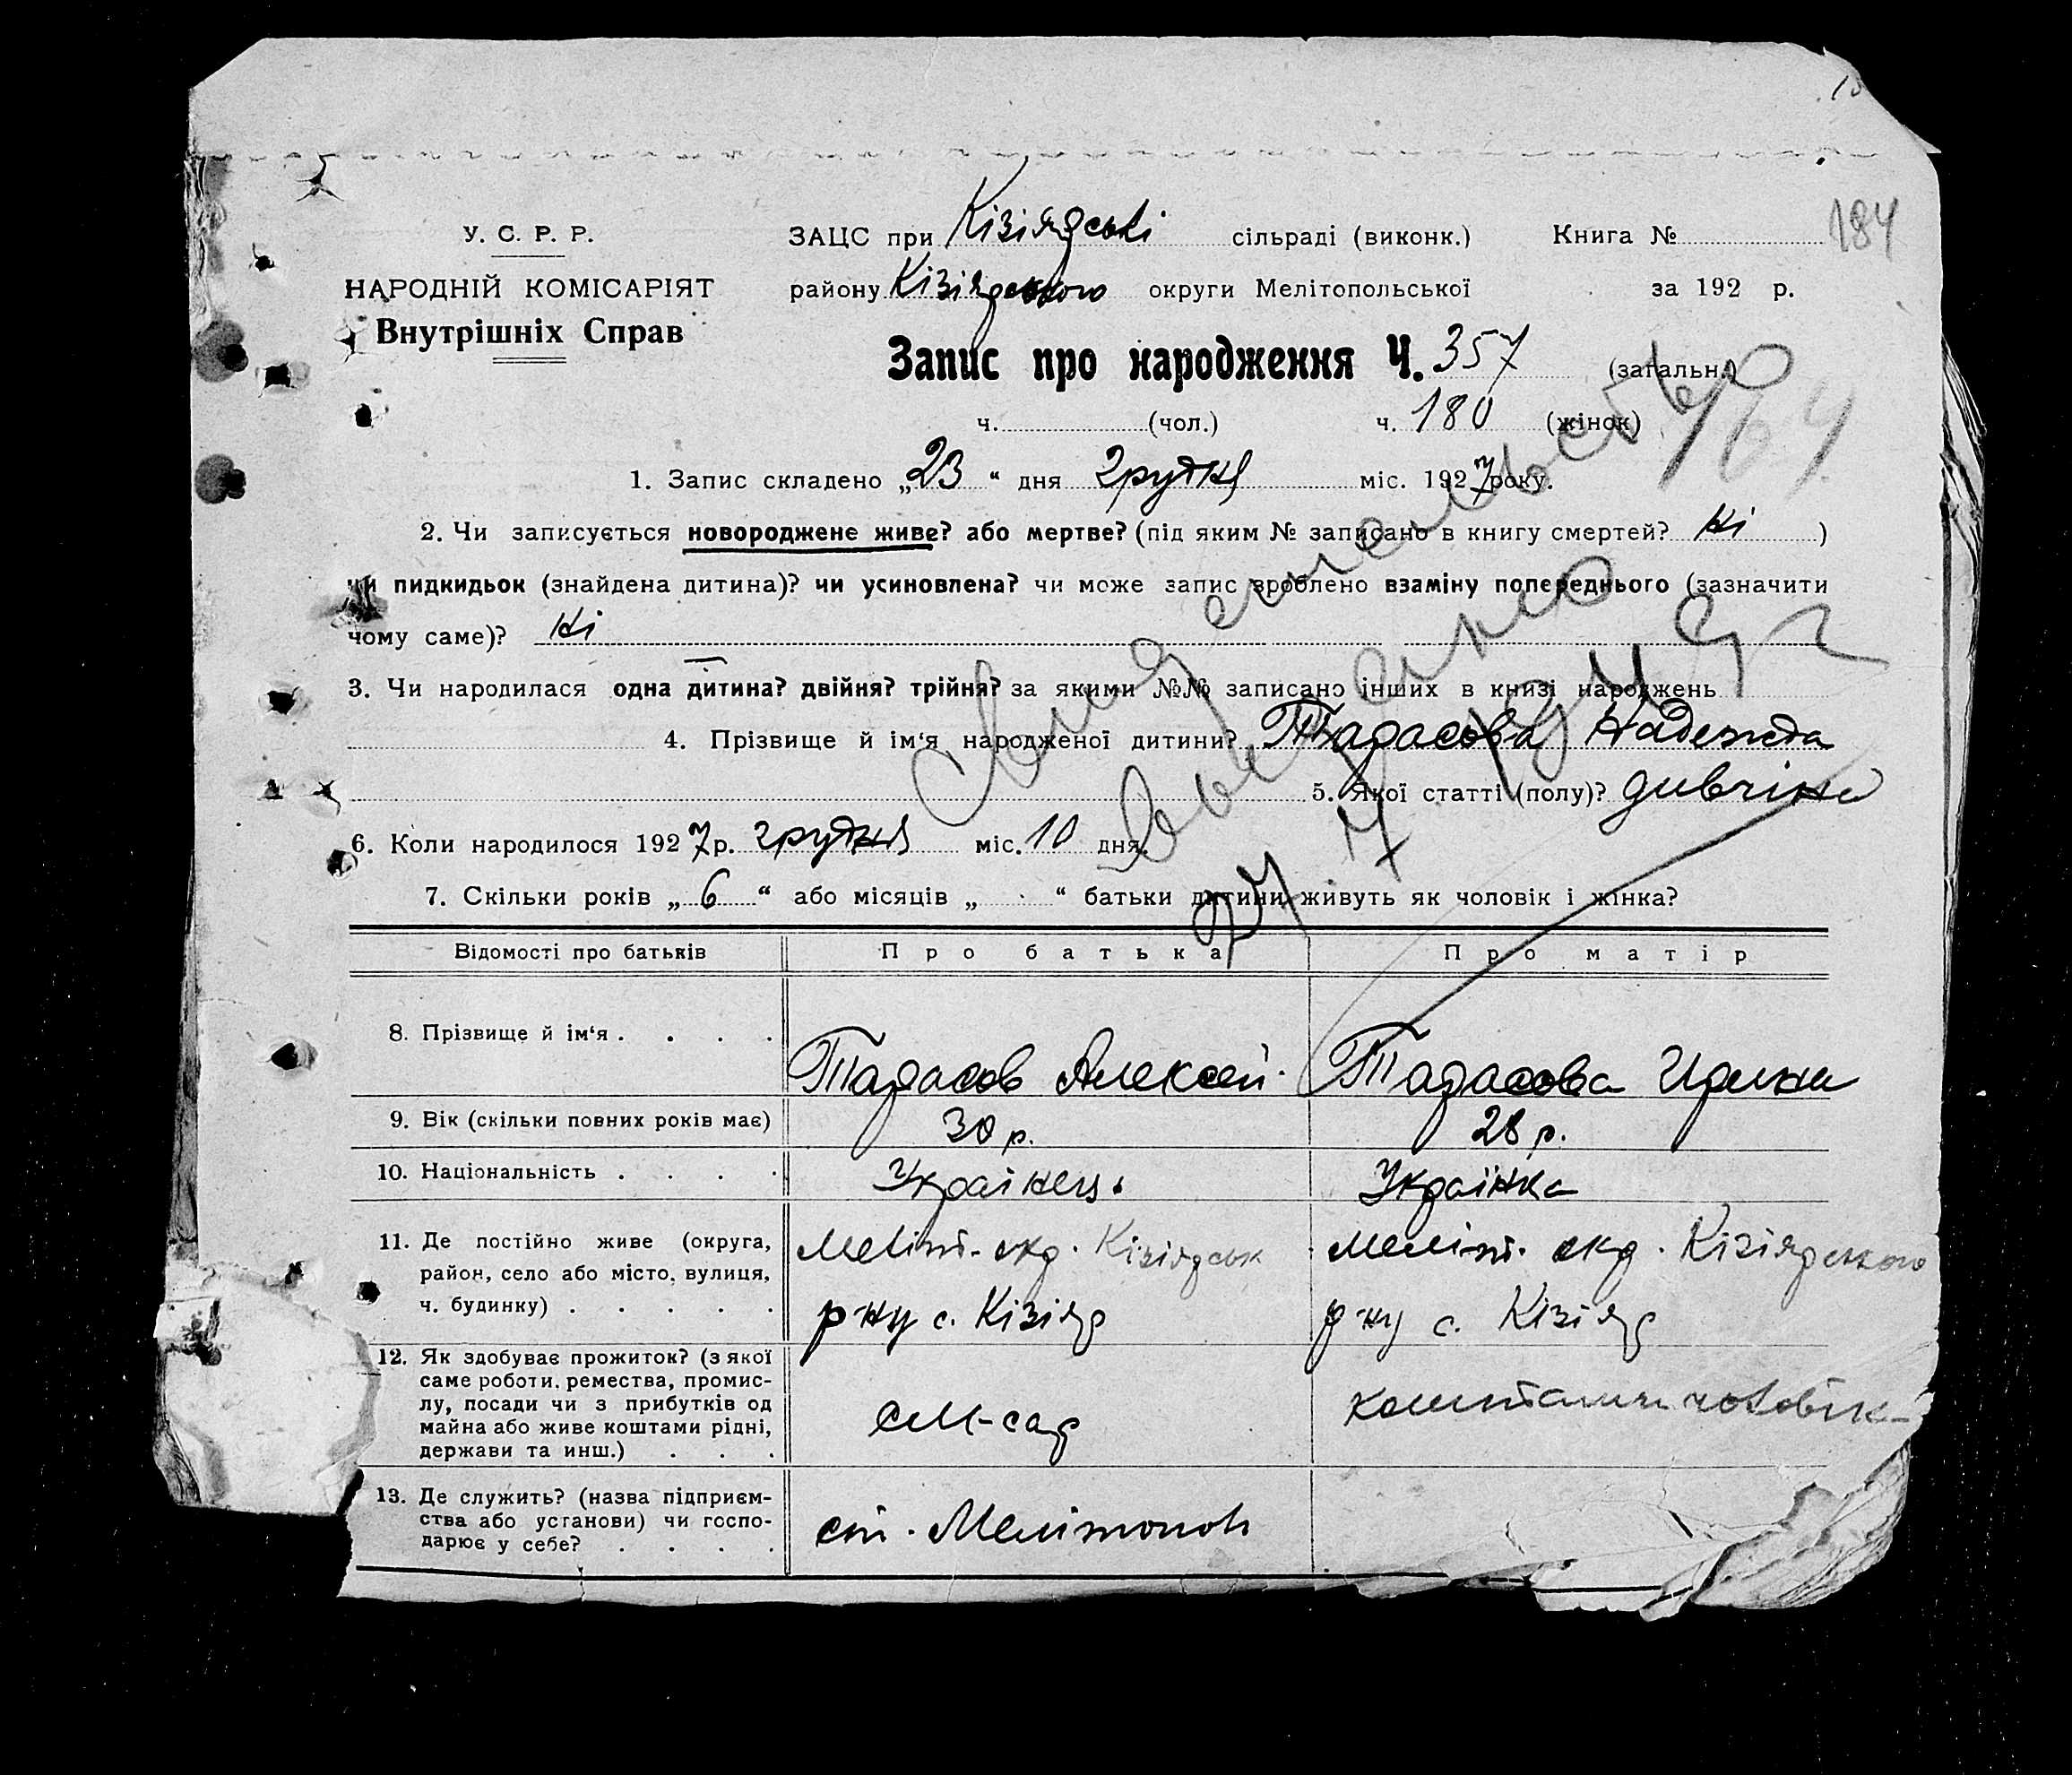 184
У. С. Р. Р.
НАРОДНІЙ КОМІСАРІЯТ
Внутрішніх Справ
ЗАЦС при Кізіярські сільраді (виконк.) Книга №
району Кізіярського округи Мелітопольської за 192 р.
Запис про народження Ч. 357 (загальн.)
ч. (чол.) ч. 180 (жінок)
1. Запис складено „23“ дня грудня міс. 1927 року.
2. Чи записується новороджене живе? або мертве? (під яким № записано в книгу смертей? ні )
чи пидкидьок (знайдена дитина)? чи усиновлена? чи може запис зроблено взаміну попереднього (зазначити
чому саме)? ні
3. Чи народилася одна дитина? двійня? трійня? за якими №№ записано інших в книзі народжень
4. Прізвище й ім‘я народженої дитини? Тарасова Надежда
5. Якої статті (полу)? дивчіна
6. Коли народилося 1927 р. грудня міс. 10 дня.
7. Скільки років „6“ або місяців „ “ батьки дитини живуть як чоловік і жінка?
Відомості про батьків Про батька Про матір
8. Прізвище й ім‘я . . . . Тарасов Алексей Тарасова Ирина
9. Вік (скільки повних років має) 30 р. 28 р.
10. Національність . . . . Українець Українка
11. Де постійно живе (округа, Меліт. окр. Кізіярськ Меліт. окр. Кізіярського
район, село або місто, вулиця,
ч. будинку) . . . . . р-ну с. Кізіяр р-ну с. Кізіяр
12. Як здобуває прожиток? (з якої
саме роботи, ремества, промис-
лу, посади чи з прибутків од коштами чоловік-
майна або живе коштами рідні,
держави та инш.) . . .
13. Де служить? (назва підприєм-
ства або установи) чи госпо- ст. Мелітополь
дарює у себе? . . . .
Свидетельство